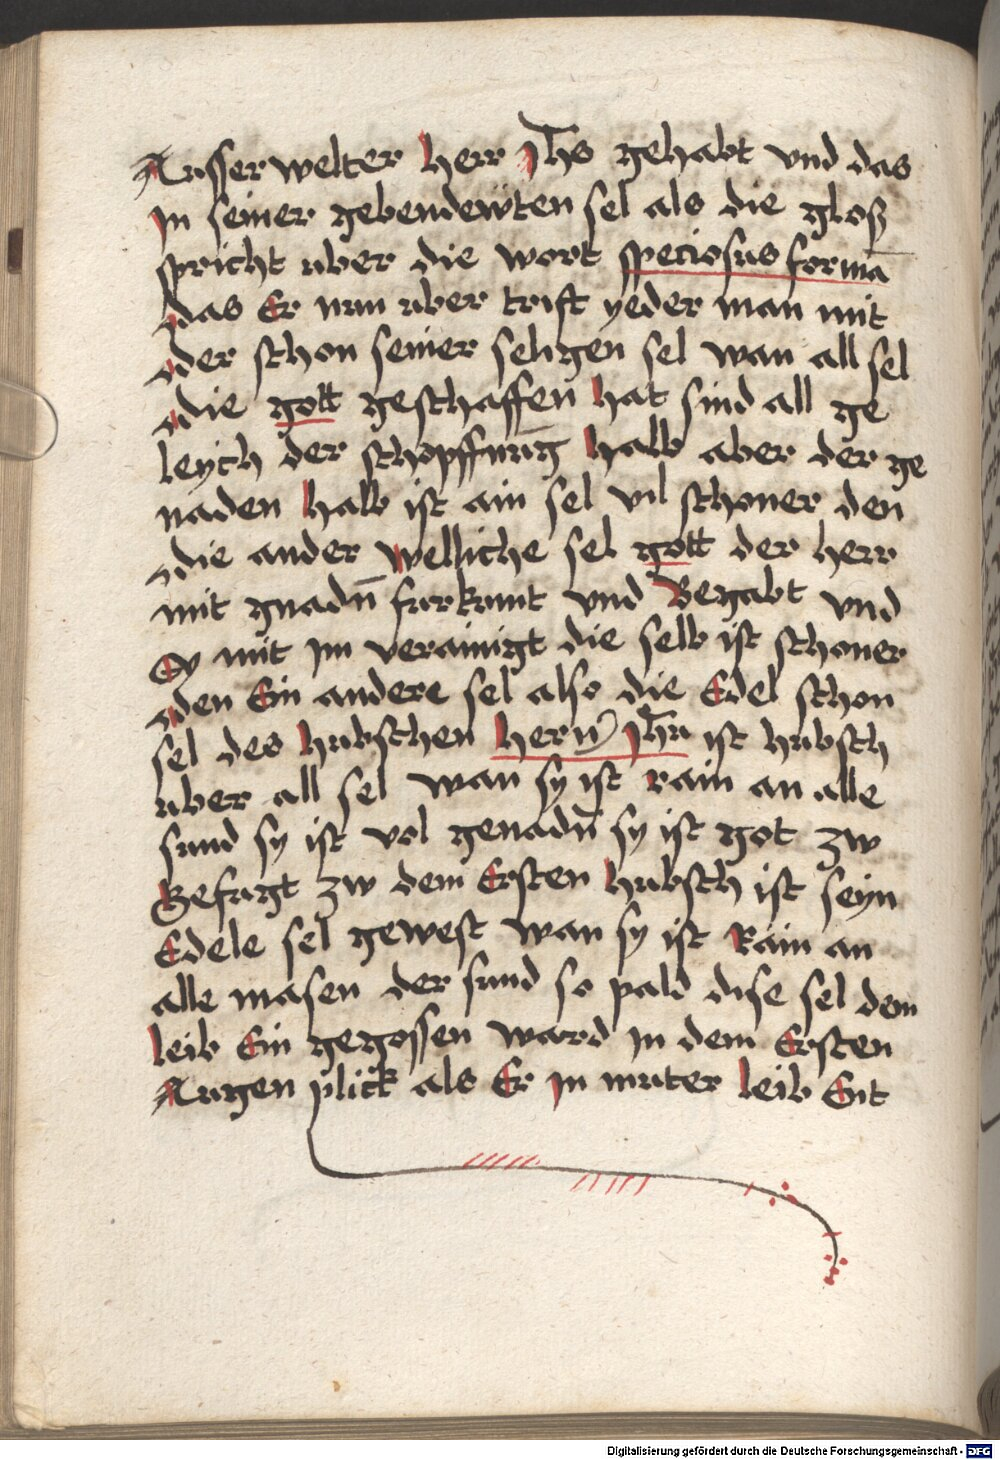 Ausser welter herr Jhs gehabt vnd das
Jn seiner gebendeẅten sel als die gloß
spricht uber die wort speciosus formā
das Er nun uber trift yeder man mit
der schon seiner seligen sel wan all sel
die gott geschaffen hat sind all ge
leych der schopffnūg halb aber der ge
naden halb ist ain sel vil schoner den
die ander welliche sel gott der herr
mit gnadn̄ furkumt vnd Begabt vnd
Sy mit im verainigt die selb ist schoner
den Ein andere sel also die Edel schon
sel des hubschen hern Jhū ist hubsch
uber all sel wan sy ist rain an alle
sund sy ist vol genadn̄ sy ist got zw
Gefugt zw dem Ersten hubsch ist seyn
Edele sel gewest wan sy ist Rain an
alle masen der sund so pald dise sel dem
leib Ein gegossen ward in dem Ersten
Augen plick als Er in muter leib Ent
Digitalisierung gefördert durch die Deutsche Forschungsgemeinschaft - DFG